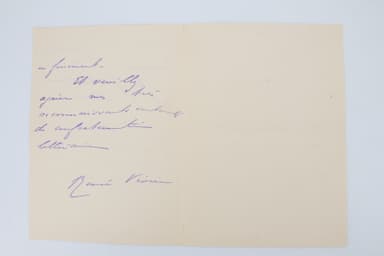 infiniment.
Et veuillez
agréer mes très
reconnaissants
de confraternité
littéraire
Renée Vivien